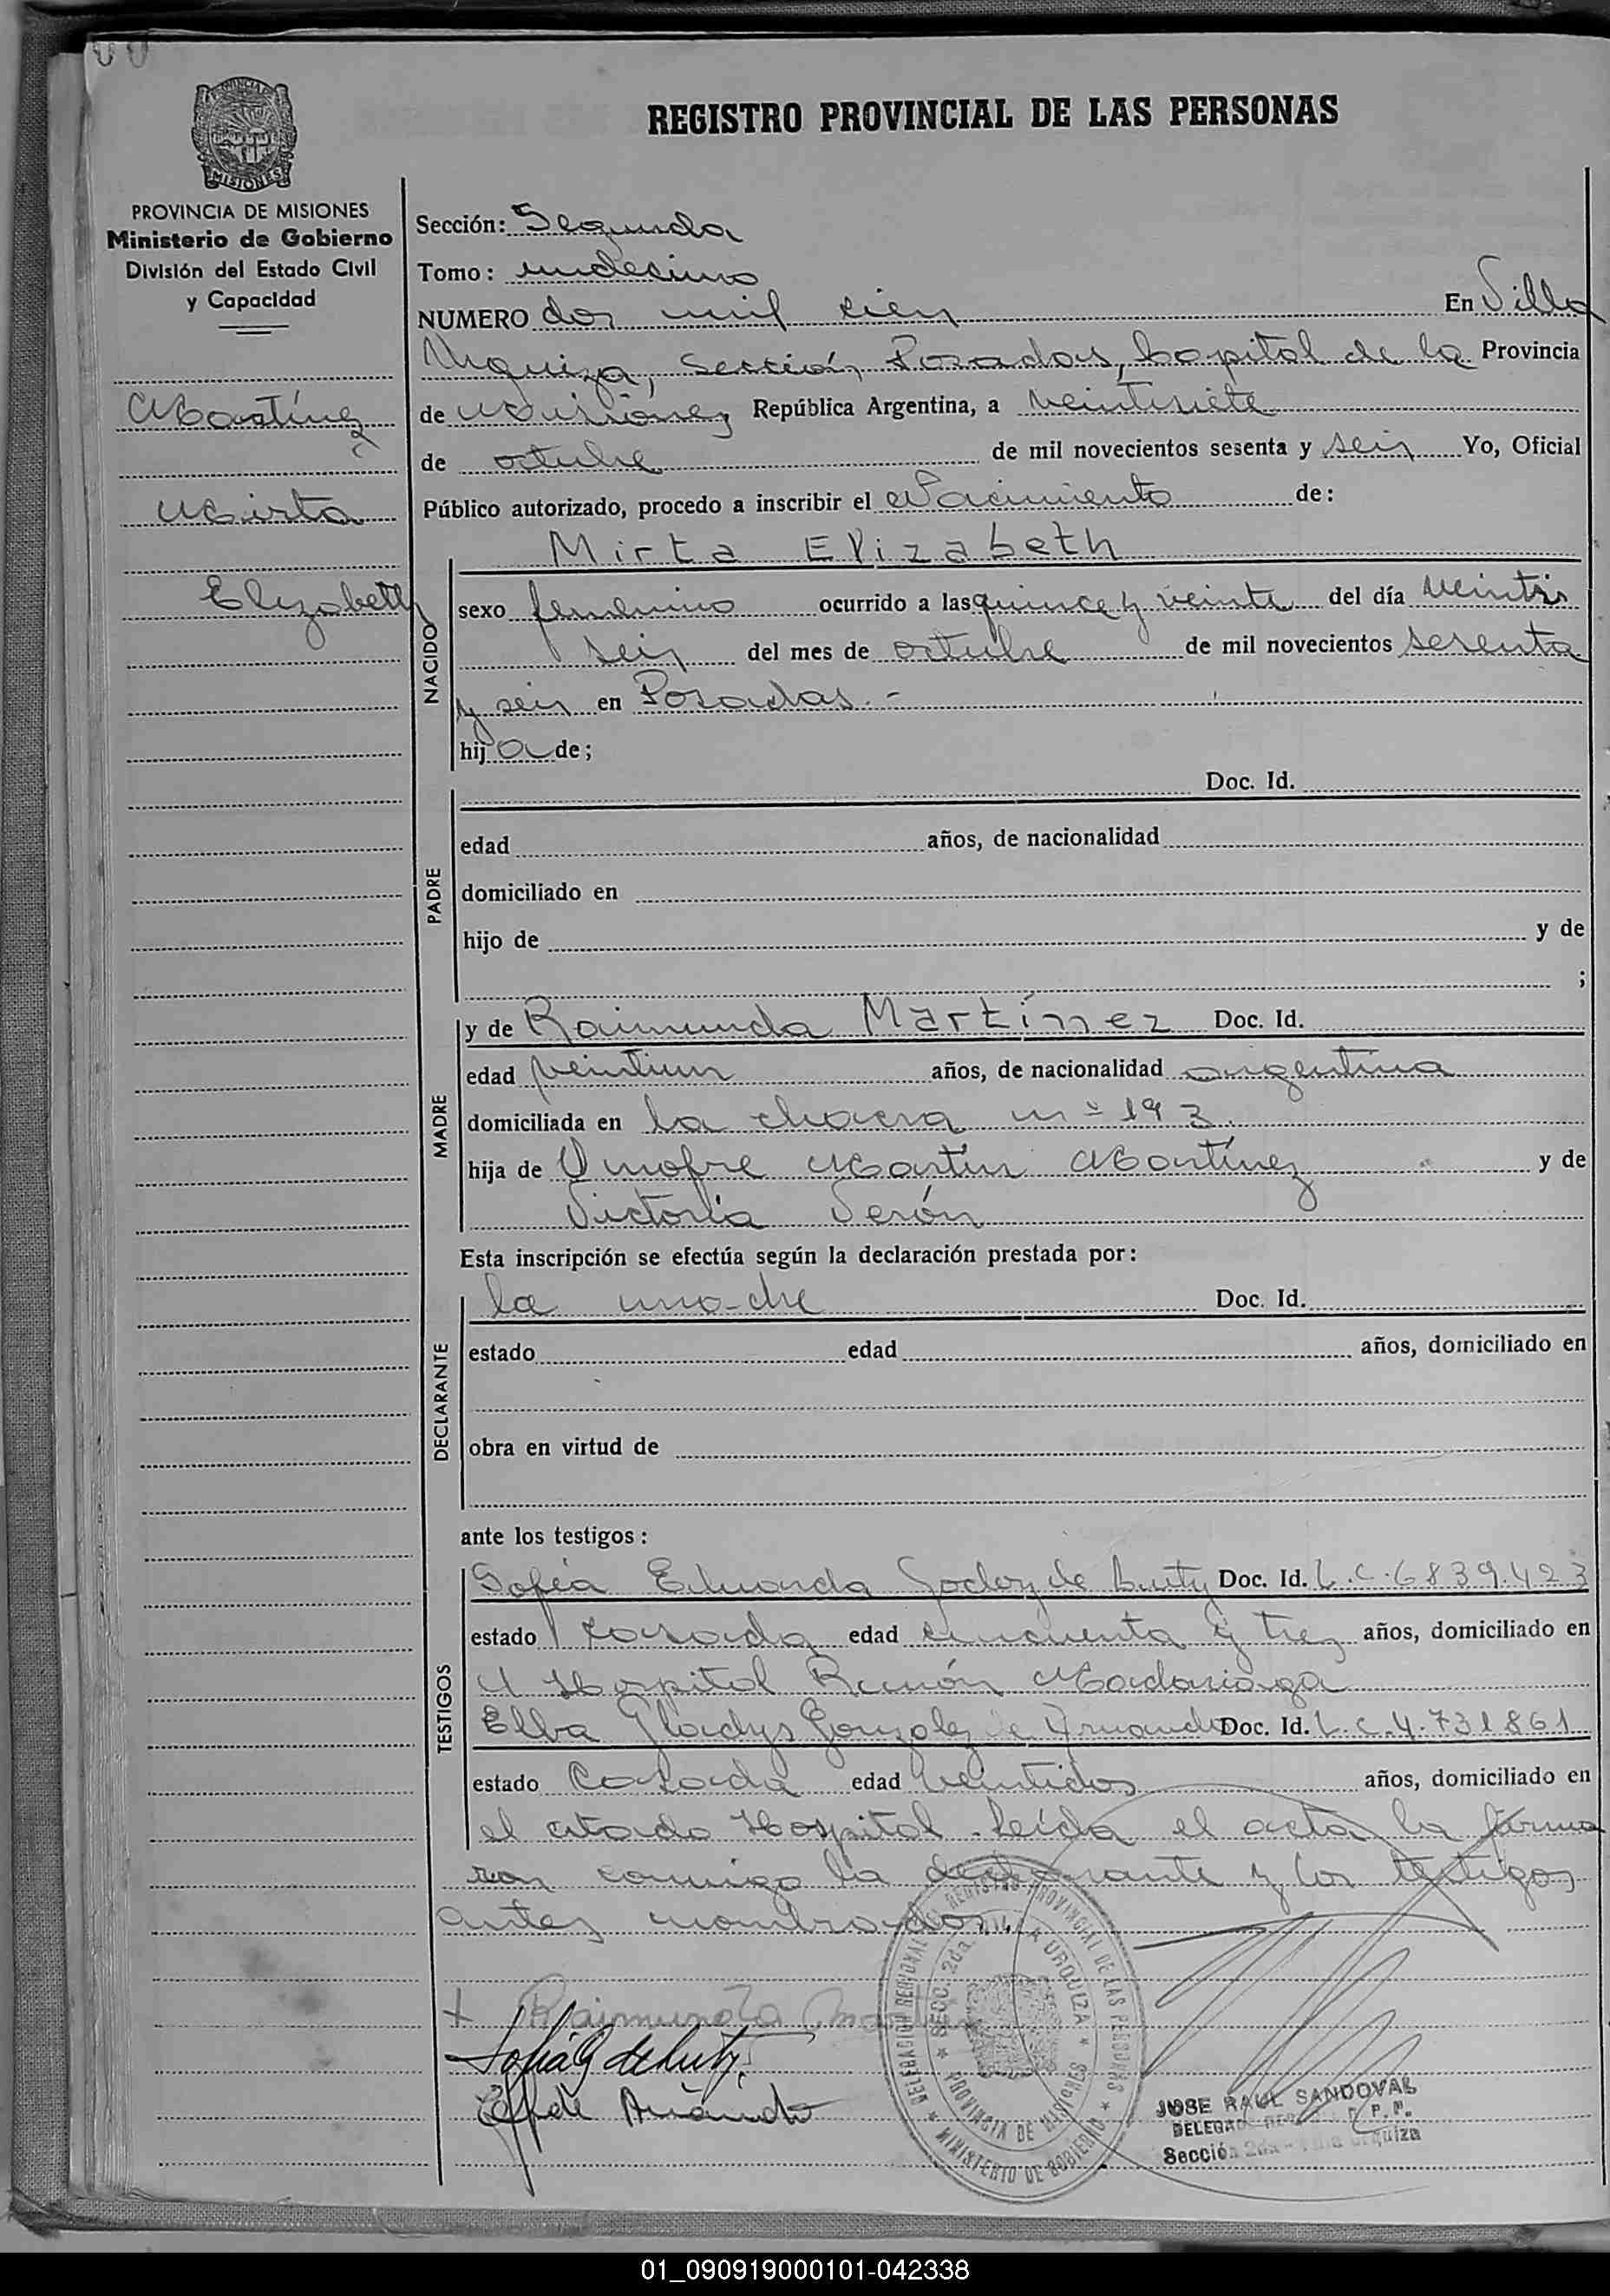 REGISTRO PROVINCIAL DE LAS PERSONAS
MISIONES
PROVINCIA DE MISIONES
Ministerio de Gobierno
División del Estado Civil
y Capacidad
Martínez
Mirta
Elizabeth
Sección: Segunda
Tomo: undecimo
NUMERO dos mil cien En Villa
Urquiza, Sección Posadas, Capital de la Provincia
de Misiones República Argentina, a veintisiete
de octubre de mil novecientos sesenta y seis Yo, Oficial
Público autorizado, procedo a inscribir el Nacimiento de:
NACIDO
Mirta Elizabeth
sexo femenino ocurrido a las quince y veinte del día veinti
seis del mes de octubre de mil novecientos sesenta
y seis en Posadas.-
hij a de;
PADRE
Doc. Id.
edad años, de nacionalidad
domiciliado en
hijo de y de
;
MADRE
y de Raimunda Martínez Doc. Id.
edad veintiun años, de nacionalidad argentina
domiciliada en la chacra nº 193.
hija de Onofre Martin Martínez y de
Victoria Verón
Esta inscripción se efectúa según la declaración prestada por:
DECLARANTE
la madre Doc. Id.
estado edad años, domiciliado en
obra en virtud de
ante los testigos:
TESTIGOS
Sofía Eduarda Godoy de Doc. Id. L.C.6839.423
estado casada edad cincuenta y tres años, domiciliado en
el Hospital Ramón Madariaga
Elba Gladys Gonzalez de Doc. Id. L.C.4.731861
estado Casada edad veintidos años, domiciliado en
el citado Hospital. Leída el acta la firma
ron conmigo la declarante y los testigos
antes nombrados.
+ Raimunda Martinez
DELEGACION REGIONAL DEL REGISTRO PROVINCIAL DE LAS PERSONAS * MINISTERIO DE GOBIERNO *
* SECC. 2da. VILLA URQUIZA * PROVINCIA DE MISIONES
JOSE RAUL SANDOVAL
Sección 2da - Villa Urquiza
01_090919000101-042338